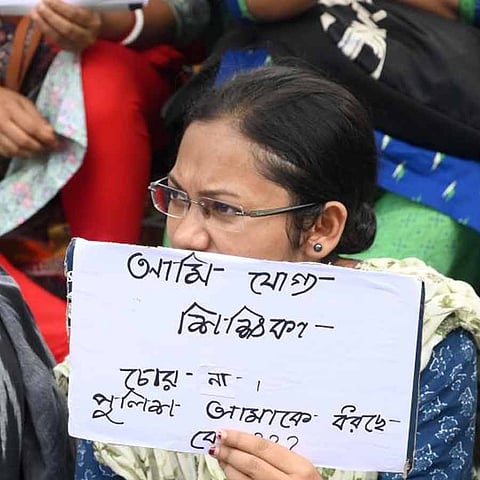 আমি যোগ্য
শিক্ষিকা
চোর না।
পুলিশ আমাকে ধরছে
কেন???